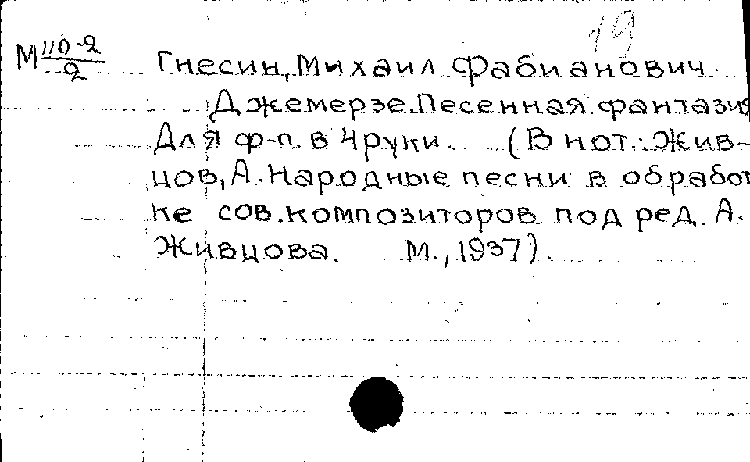 19
М 110-2
2
Гнесин, Михаил Фабианович
Джемерзе. Песенная фантазия
Для ф-п. в 4 руки. (В нот.: Жив-
цов, А. Народные песни в обработ
ке сов. композиторов под ред. А.
Живцова. М., 1937).